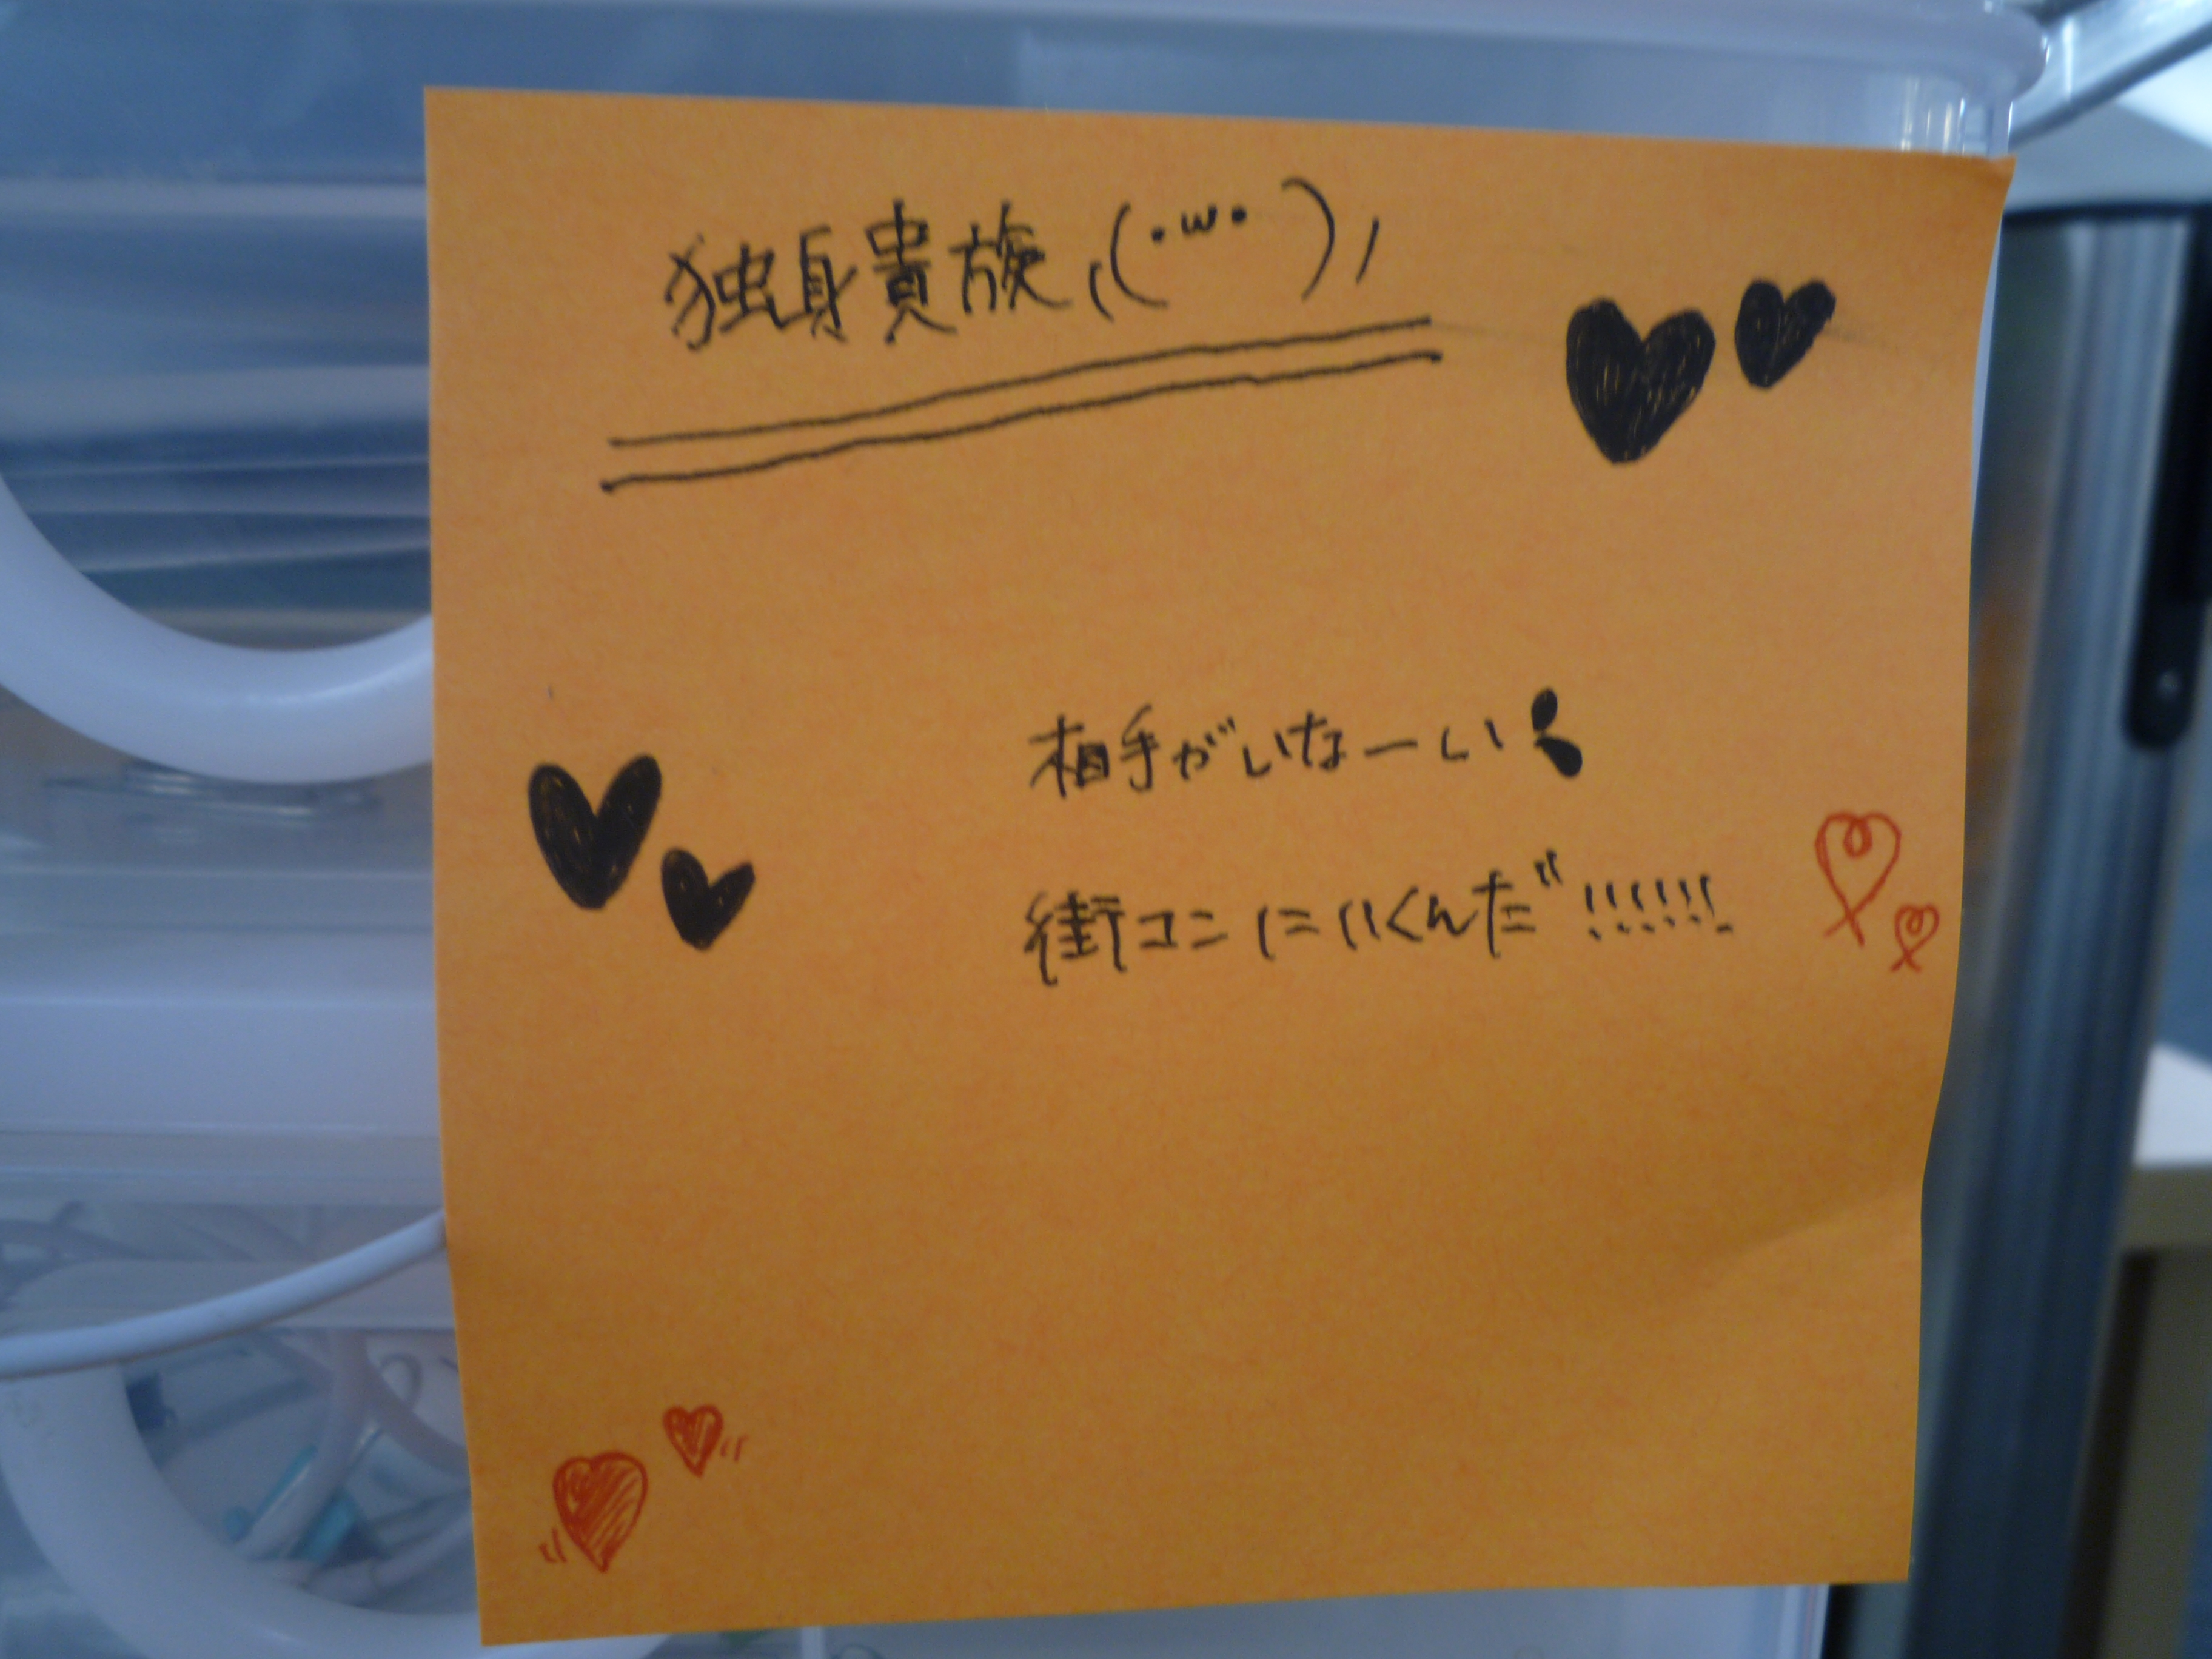 独身貴族ヽ(・ω・)ノ
相手がいなーい
街コンにいくんだ!!!!!!